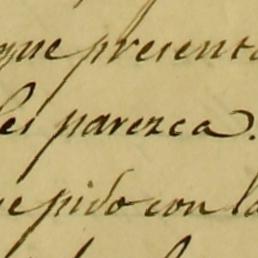 que presenta
les parezca.
e pido con la